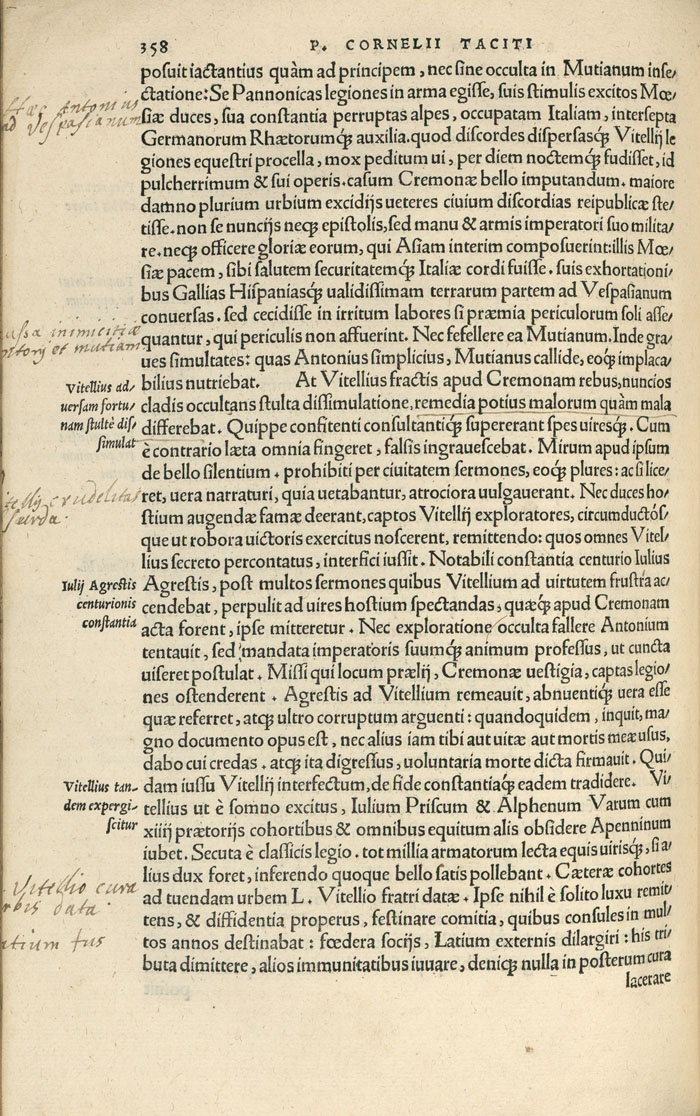 358 P. CORNELII TACITI
posuit iactantius quàm ad principem, nec sine occulta in Mutianum inse/
ctatione: Se Pannonicas legiones in arma egisse, suis stimulis excitos Mœ/
siæ duces, sua constantia perruptas alpes, occupatam Italiam, intersepta
Germanorum Rhætorumq́; auxilia. quod discordes dispersasq́; Vitellij le
giones equestri procella, mox peditum ui, per diem noctemq́; fudisset, id
pulcherrimum & sui operis. casum Cremonæ bello imputandum. maiore
damno plurium urbium excidijs ueteres ciuium discordias reipublicæ ste/
tisse. non se nuncijs neq́; epistolis, sed manu & armis imperatori suo milita/
re. neq́; officere gloriæ eorum, qui Asiam interim composuerint: illis Mœ/
siæ pacem, sibi salutem securitatemq́; Italiæ cordi fuisse. suis exhortationi/
bus Gallias Hispaniasq́; ualidissimam terrarum partem ad Vespasianum
conuersas. sed cecidisse in irritum labores si præmia periculorum soli asse/
quantur, qui periculis non affuerint. Nec fefellere ea Mutianum. Inde gra/
ues simultates: quas Antonius simplicius, Mutianus callide, eoq́; implaca/
bilius nutriebat. At Vitellius fractis apud Cremonam rebus, nuncios
cladis occultans stulta dissimulatione, remedia potius malorum quàm mala
differebat. Quippe confitenti consultantiq́; supererant spes uiresq́;. Cum
è contrario læta omnia fingeret, falsis ingrauescebat. Mirum apud ipsum
de bello silentium. prohibiti per ciuitatem sermones, eoq́; plures: ac si lice/
ret, uera narraturi, quia uetabantur, atrociora uulgauerant. Nec duces ho/
stium augendæ famæ deerant, captos Vitellij exploratores, circumductós/
que ut robora uictoris exercitus noscerent, remittendo: quos omnes Vitel/
lius secreto percontatus, interfici iussit. Notabili constantia centurio Iulius
Agrestis, post multos sermones quibus Vitellium ad uirtutem frustrà ac/
cendebat, perpulit ad uires hostium spectandas, quæq́; apud Cremonam
acta forent, ipse mitteretur. Nec exploratione occulta fallere Antonium
tentauit, sed mandata imperatoris suumq́; animum professus, ut cuncta
uiseret postulat. Missi qui locum prælij, Cremonæ uestigia, captas legio/
nes ostenderent. Agrestis ad Vitellium remeauit, abnuentiq́; uera esse
quæ referret, atq́; ultro corruptum arguenti: quandoquidem, inquit, ma/
gno documento opus est, nec alius iam tibi aut uitæ aut mortis meæ usus,
dabo cui credas. atq́; ita digressus, uoluntaria morte dicta firmauit. Qui/
dam iussu Vitellij interfectum, de fide constantiaq́; eadem tradidere. Vi/
tellius ut è somno excitus, Iulium Priscum & Alphenum Varum cum
xiiij prætorijs cohortibus & omnibus equitum alis obsidere Apenninum
iubet. Secuta è classicis legio. tot millia armatorum lecta equis uirisq́;, si a/
lius dux foret, inferendo quoque bello satis pollebant. Cæteræ cohortes
ad tuendam urbem L. Vitellio fratri datæ. Ipse nihil è solito luxu remit/
tens, & diffidentia properus, festinare comitia, quibus consules in mul/
tos annos destinabat: fœdera socijs, Latium externis dilargiri: his tri/
buta dimittere, alios immunitatibus iuuare, deniq́; nulla in posterum cura
lacerare
Hæc Antonius
ad Vespasianum
inimicitiæ
et mutiani
Vitellius ad/
uersam fortu/
nam stultè dis/
simulat
crudelitas
Iulij Agrestis
centurionis
constantia
Vitellius tan/
dem expergi/
scitur
Vitellio cura
data
ius